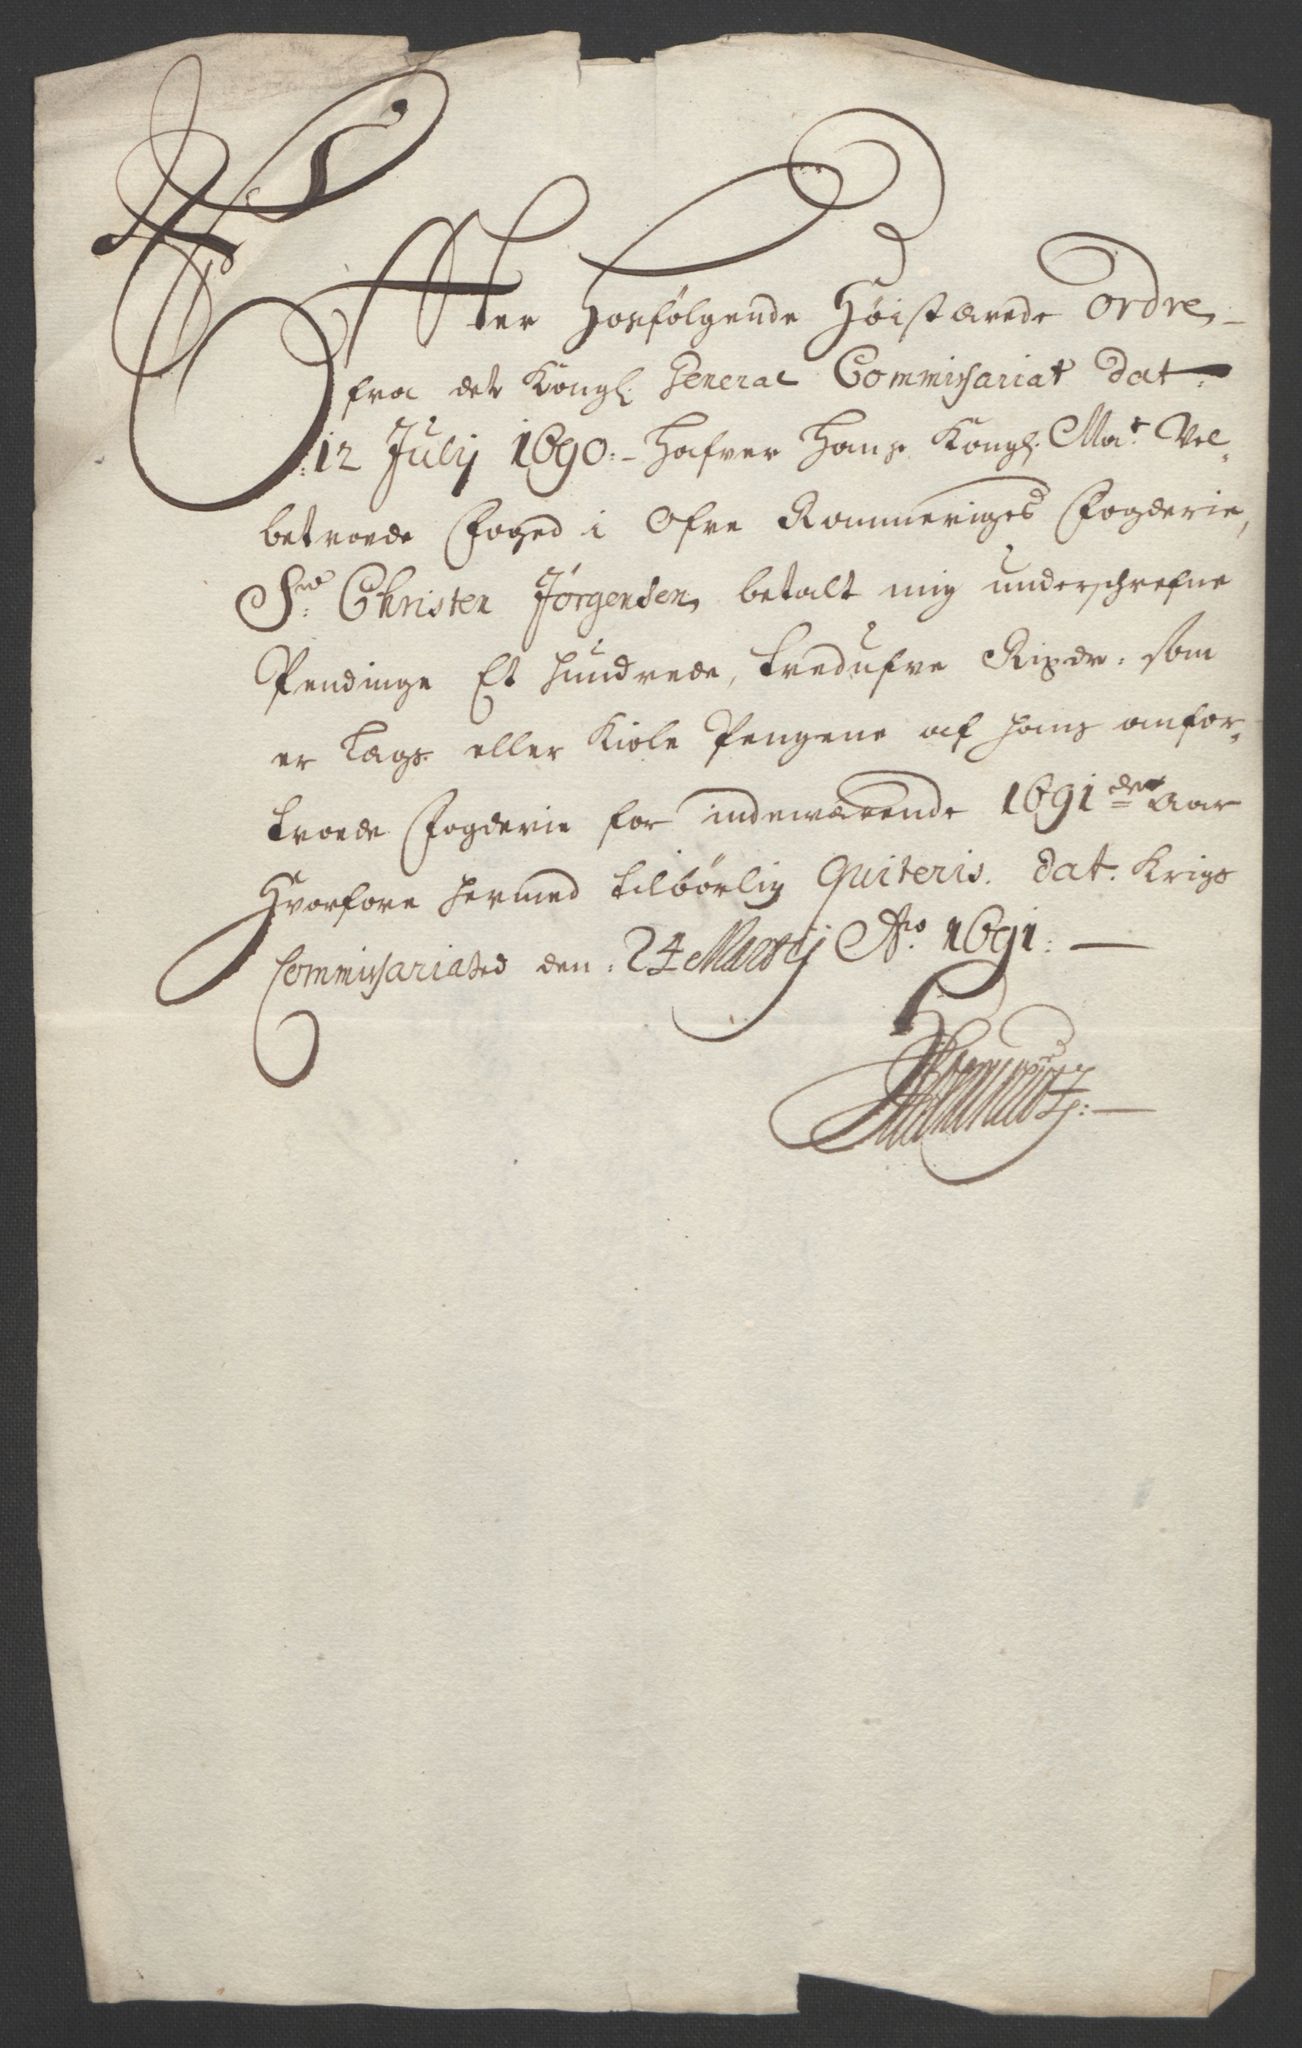 Effter Hosfølgende Høistærede Ordre
fra det Kongl. General Commissariat dat:
12 Julij 1690:- Hafver Hans Kongl. Ma.t Vel-
betroede Foged i Ofre Rommeriges Fogderie,
Sr. Christen Jørgensen, betalt mig underschrefne
Pendinge Et hundrede, tredufve Rixdr: som
er Lægs eller Kiole Pengene af hans anfor-
troede Fogderie for indewærende 1691 de Aar
Hvorfore hermed tilbørlig Quiteris. Dat. Krigs
Commissariated den: 24 Martij Ao. 1691: